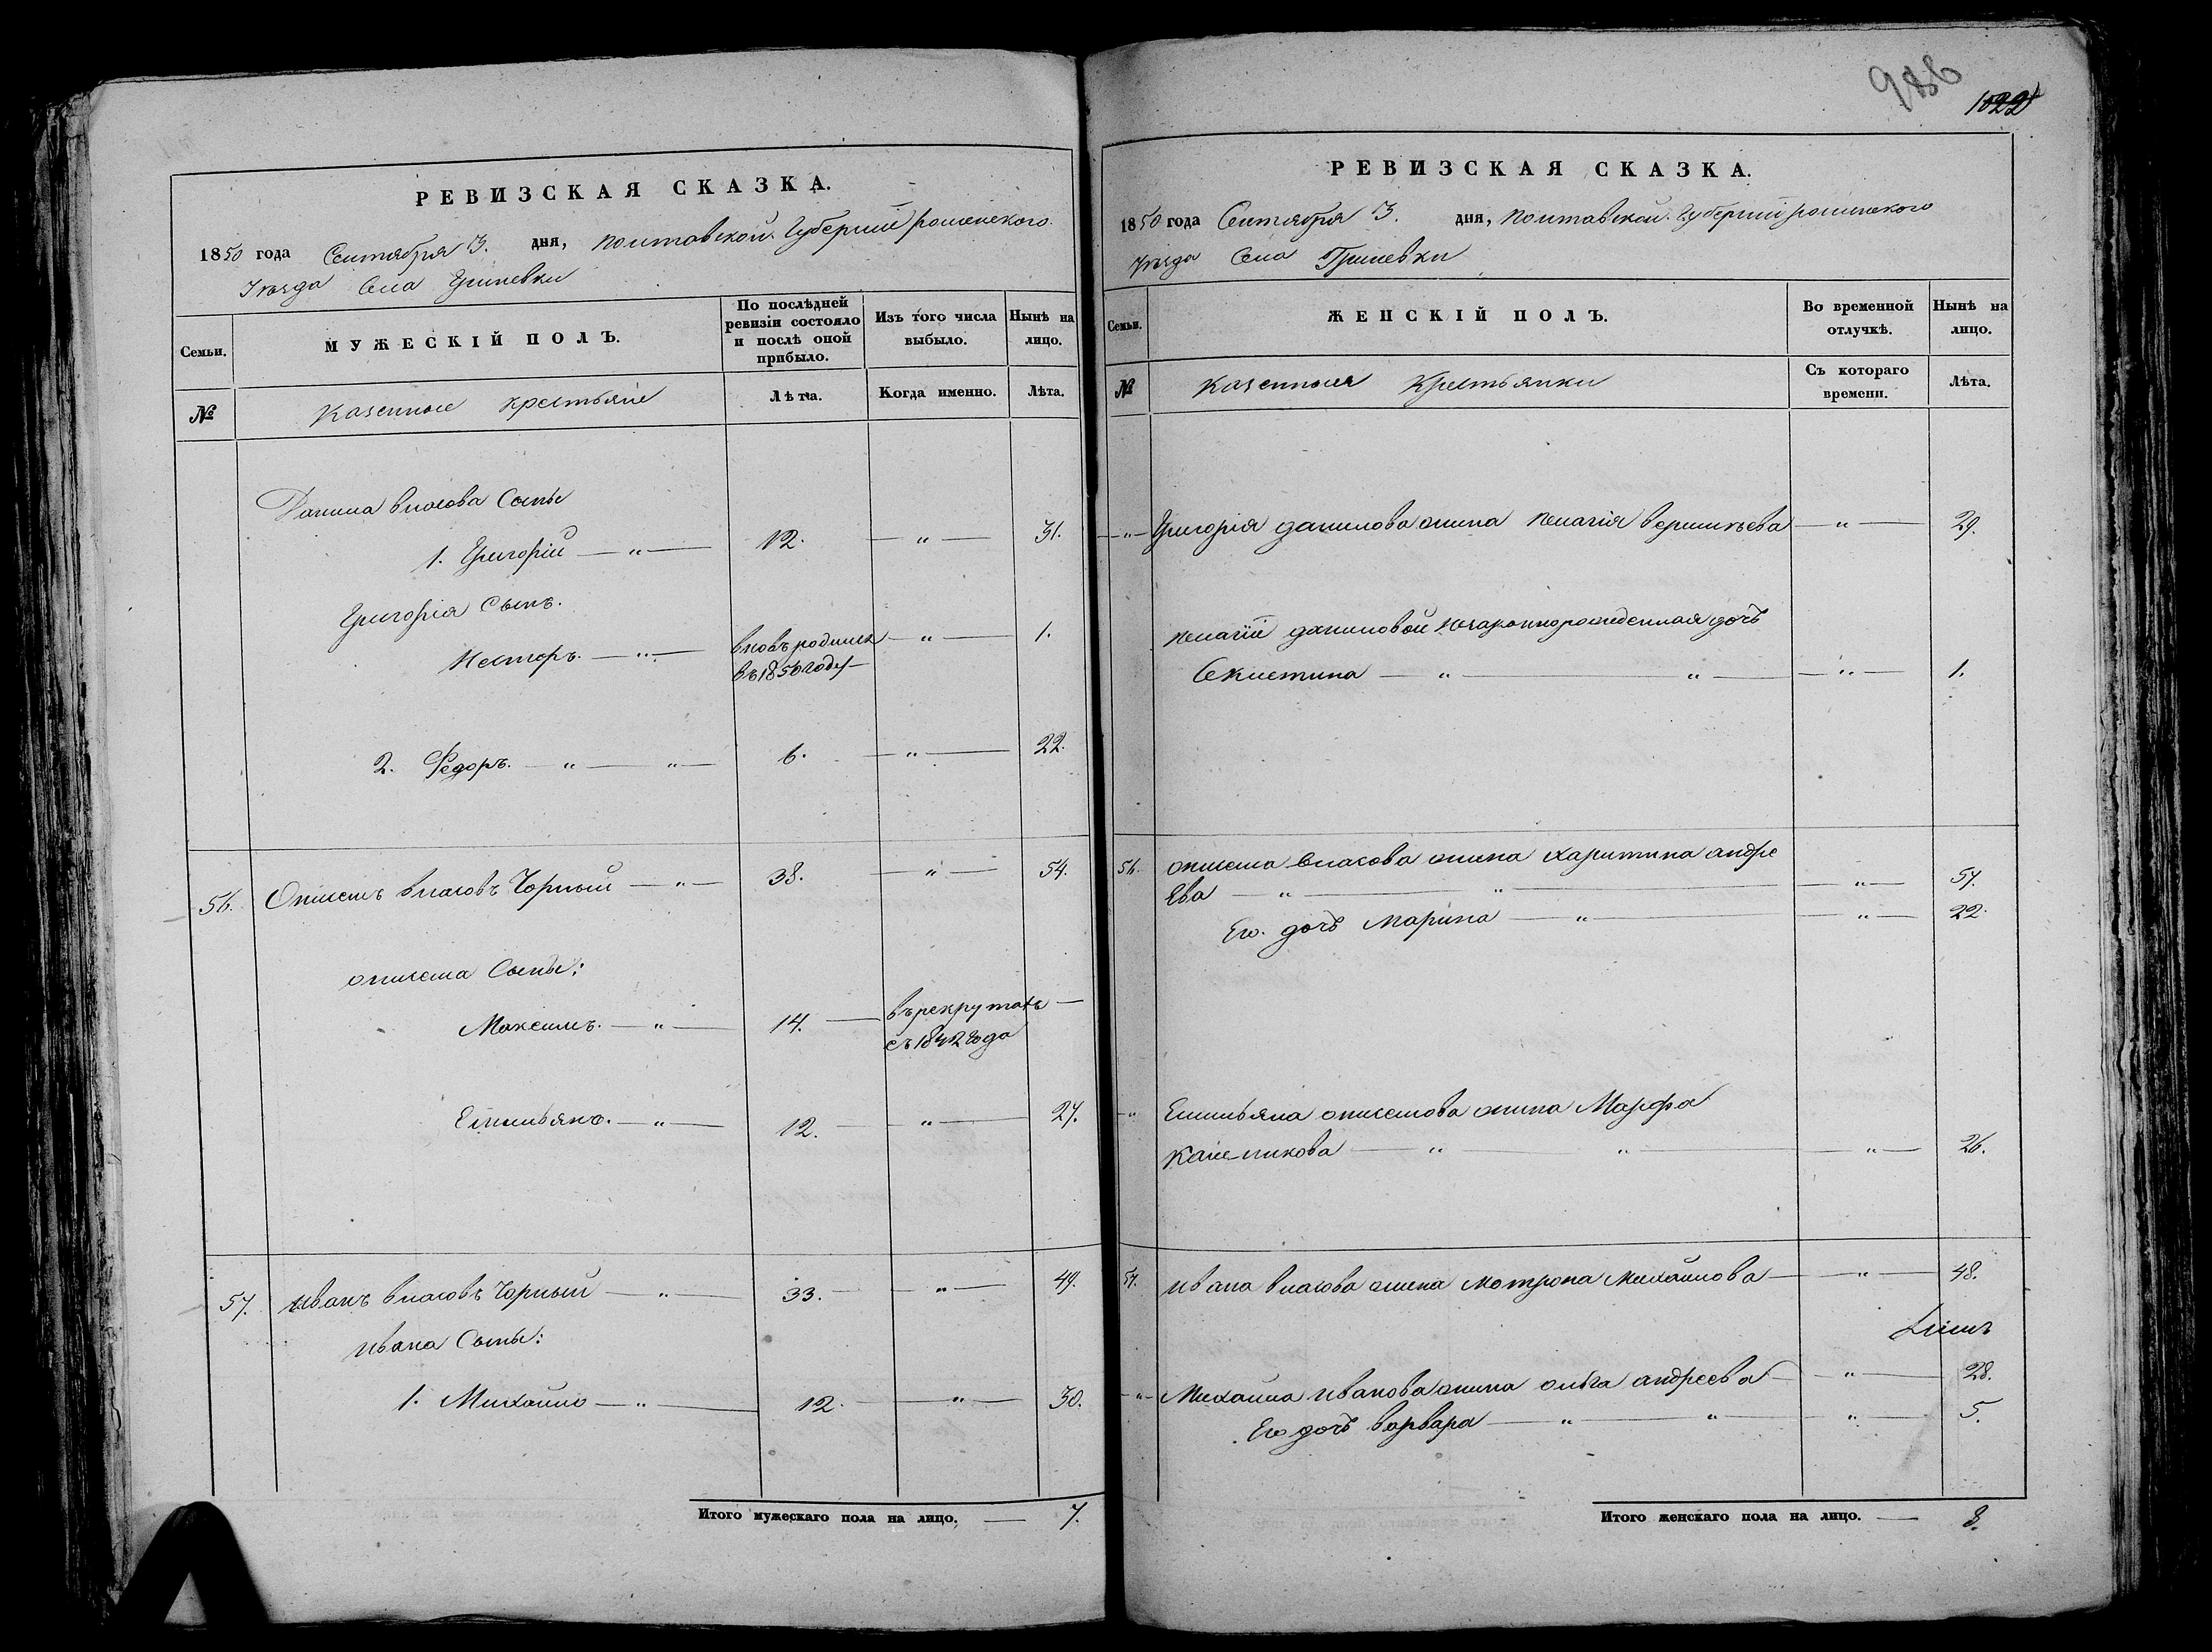 РЕВИЗСКАЯ СКАЗКА.
1850 года Сентября 3. дня, полтавской Губернии роменского
Уѣзда Села Гриневки
Семьи.
МУЖЕСКІЙ ПОЛЪ.
По послѣдней ревизіи состояло и послѣ оной прибыло.
Изъ того числа выбыло.
Нынѣ на лицо.
№
Казенные крестьяне
Лѣта.
Когда именно.
Лѣта.
Данила власова Сыны
1. Григорій — „ — 12. — „ — 31.
Григорія Сынъ.
Несторъ. — „ — вновь родился — „ — 1.
въ 1850 году
2. Федоръ. — „ — „ — 6. — „ — 22.
56. Онисимъ власовъ Чорный — „ — 38. — „ — 54.
онисима Сыны:
Максимъ. — „ — 14. — въ рекрутахъ —
съ 1842 года
Емильянъ. — „ — 12. — „ — 27.
57. иванъ власовъ Чорный — „ — 33. — „ — 49.
ивана Сыны:
1. Михайло — „ — 12. — „ — 30.
Итого мужескаго пола на лицо. — 7.
986
1022
РЕВИЗСКАЯ СКАЗКА.
1850 года Сентября 3. дня, полтавской Губернии роменского
уѣзда Села Гриневки
Семьи.
ЖЕНСКІЙ ПОЛЪ.
Во временной отлучкѣ.
Нынѣ на лицо.
№
Казенныя Крестьянки
Съ котораго времени.
Лѣта.
— „ — Григорія данилова жина пелагія — „ — 29.
пелагіи даниловой незаконнорожденная дочь
— „ — „ — „ — 1.
56. онисима власова жина харитина андре
ева — „ — „ — „ — 57.
Его дочь Марина — „ — „ — 22.
— „ Емильяна онисимова жина Марфа
— „ — „ — „ — 26.
57. ивана власова жина мотрона михайлова — „ — 48.
— „ — Михайла иванова жина ольга андреева — „ — 28.
Его дочь варвара — „ — „ — „ — 5.
Итого женскаго пола на лицо. — 8.